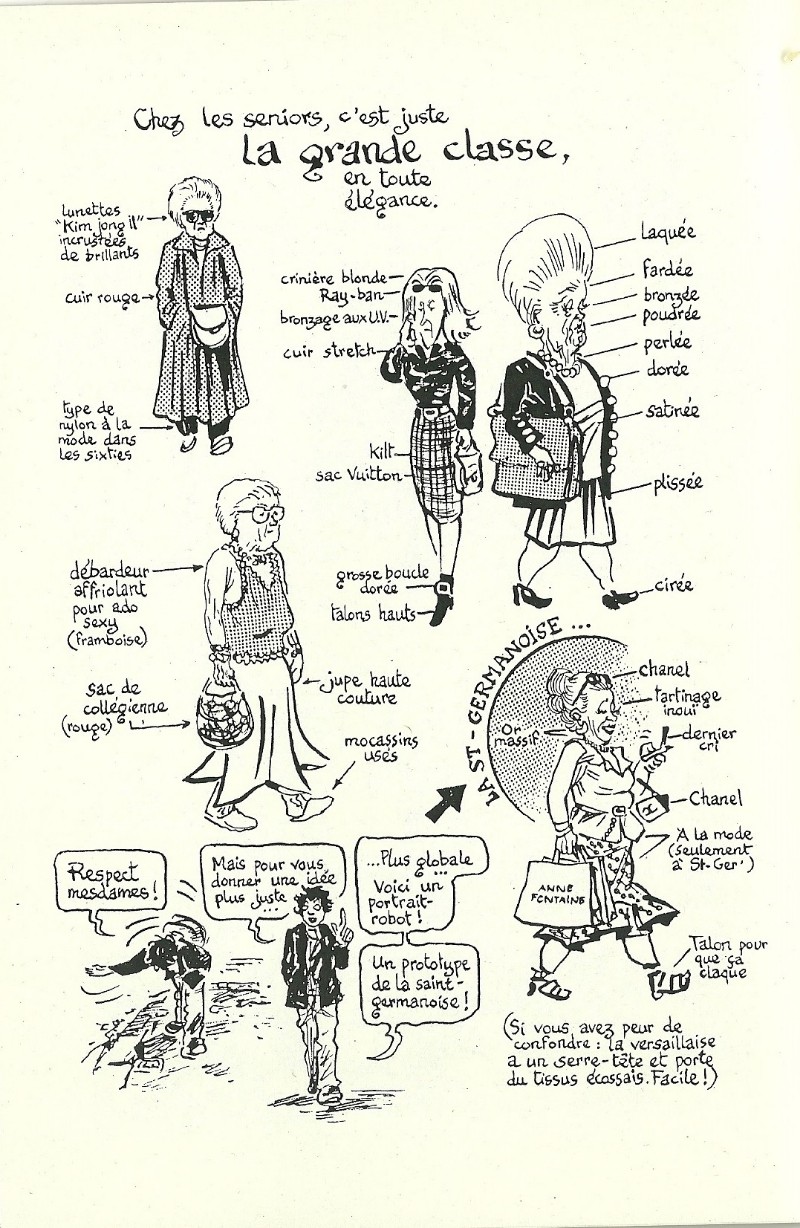 Chez les seniors, c'est juste
la grande classe,
en toute
élégance.
lunettes
"Kim jong il"
incrustées
de brillants
cuir rouge
type de
nylon à la
mode dans
les sixties
crinière blonde
Ray-ban
bronzage aux U.V.
cuir stretch
kilt
sac Vuitton
grosse boucle
dorée
talons hauts
Laquée
fardée
bronzée
poudrée
perlée
dorée
satinée
plissée
cirée
débardeur
affriolant
pour ado
sexy
(framboise)
sac de
collégienne
(rouge)
jupe haute
couture
mocassins
usés
LA ST-GERMANOISE ...
Or
massif
chanel
tartinage
inouï
dernier
cri
Chanel
A la mode
(seulement
à St-Ger')
ANNE
FONTAINE
Talon pour
que ça
claque
Respect
mesdames !
Mais pour vous
donner une idée
plus juste
...
...Plus globale
...
Voici un
portrait-
robot !
Un prototype
de la saint-
germanoise !
(Si vous avez peur de
confondre : la versaillaise
a un serre-tête et porte
du tissus écossais. Facile !)